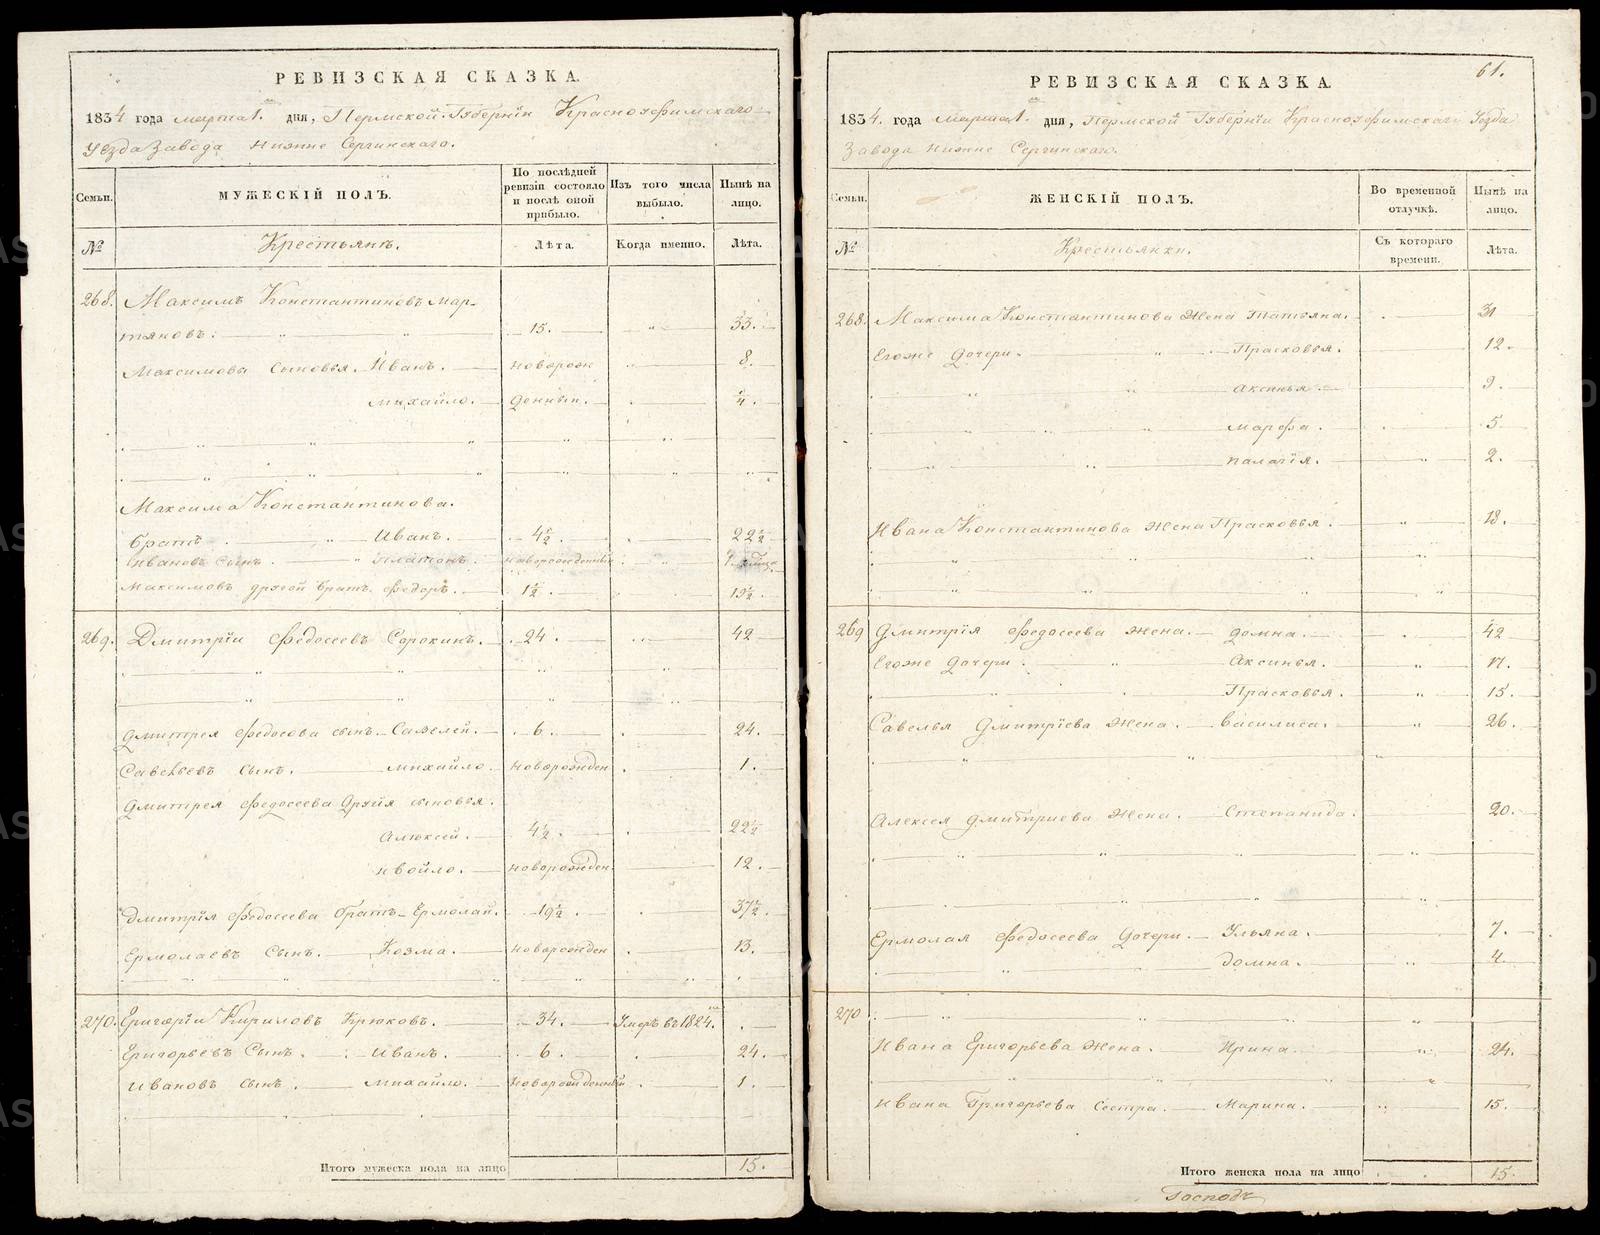 РЕВИЗСКАЯ СКАЗКА.
1834 года марта 1. дня, Пермской Губернiи Красноуфимскаго
Уезда Завода Нижне Сергинскаго.
Семьи.
МУЖЕСКІЙ ПОЛЪ.
По послѣдней ревизіи состояло и послѣ оной прибыло.
Изъ того числа выбыло.
Нынѣ на лицо.
№
Крестьянъ.
Лѣта.
Когда именно.
Лѣта.
268. Максимъ Константиновъ Мар-
тяновъ. 15. 33.
Максимовы сыновья. Иванъ. новорож 8.
Михайло. денныи. 4.
Максима Константинова.
братъ Иванъ. 4½. 22½
Ивановъ сынъ. Платонъ. новорожденный
Максимовъ другой братъ Федоръ. 1½. 19½.
269. Дмитрiи Федосеевъ Сорокинъ. 24. 42
Дмитрея Федосова сынъ Савелей. 6. 24.
Савельевъ сынъ. михайло. новорожден 1.
Дмитрея Федосеева другiя сыновья.
Алексей. 4½. 22½
новорожден 12.
Дмитрiя Федосеева братъ Ермолай. 19½. 37½.
Ермолаевъ Сынъ. Козма. новорожден 13.
270. Григорiи Кириловъ Крюковъ. 34. Умеръ въ 1824.
Григорьевъ Сынъ. Иванъ. 6. 24.
Ивановъ сынъ. михайло. новорожденный 1.
Итого мужеска пола на лицо 15.
61.
РЕВИЗСКАЯ СКАЗКА.
1834. года марта 1. дня, Пермской Губернiи Красноуфимскаго Уезда
Завода Нижне Сергинскаго.
Семьи.
ЖЕНСКІЙ ПОЛЪ.
Во временной отлучкѣ.
Нынѣ на лицо.
№
Крестьянки.
Съ котораго времени.
Лѣта.
268. Максима Константинова жена Татьяна. 31
Егоже дочери. Прасковья. 12.
Аксинья 9.
Марфа. 5.
Палагiя. 2.
Ивана Константинова жена Прасковья. 18.
269 Дмитрiя Федосеева жена. домна. 42
Егоже дочери. Аксинья. 17.
Прасковья. 15.
Савелья Дмитрiева жена. василиса. 26.
Алексея дмитриева жена. Степанида. 20.
Ермолая Федосеева дочери. Ульяна. 7.
Домна. 4.
270
Ивана Григорьева жена. Ирина. 24.
Ивана Григорьева сестра. Марина. 15.
Итого женска пола на лицо 15.